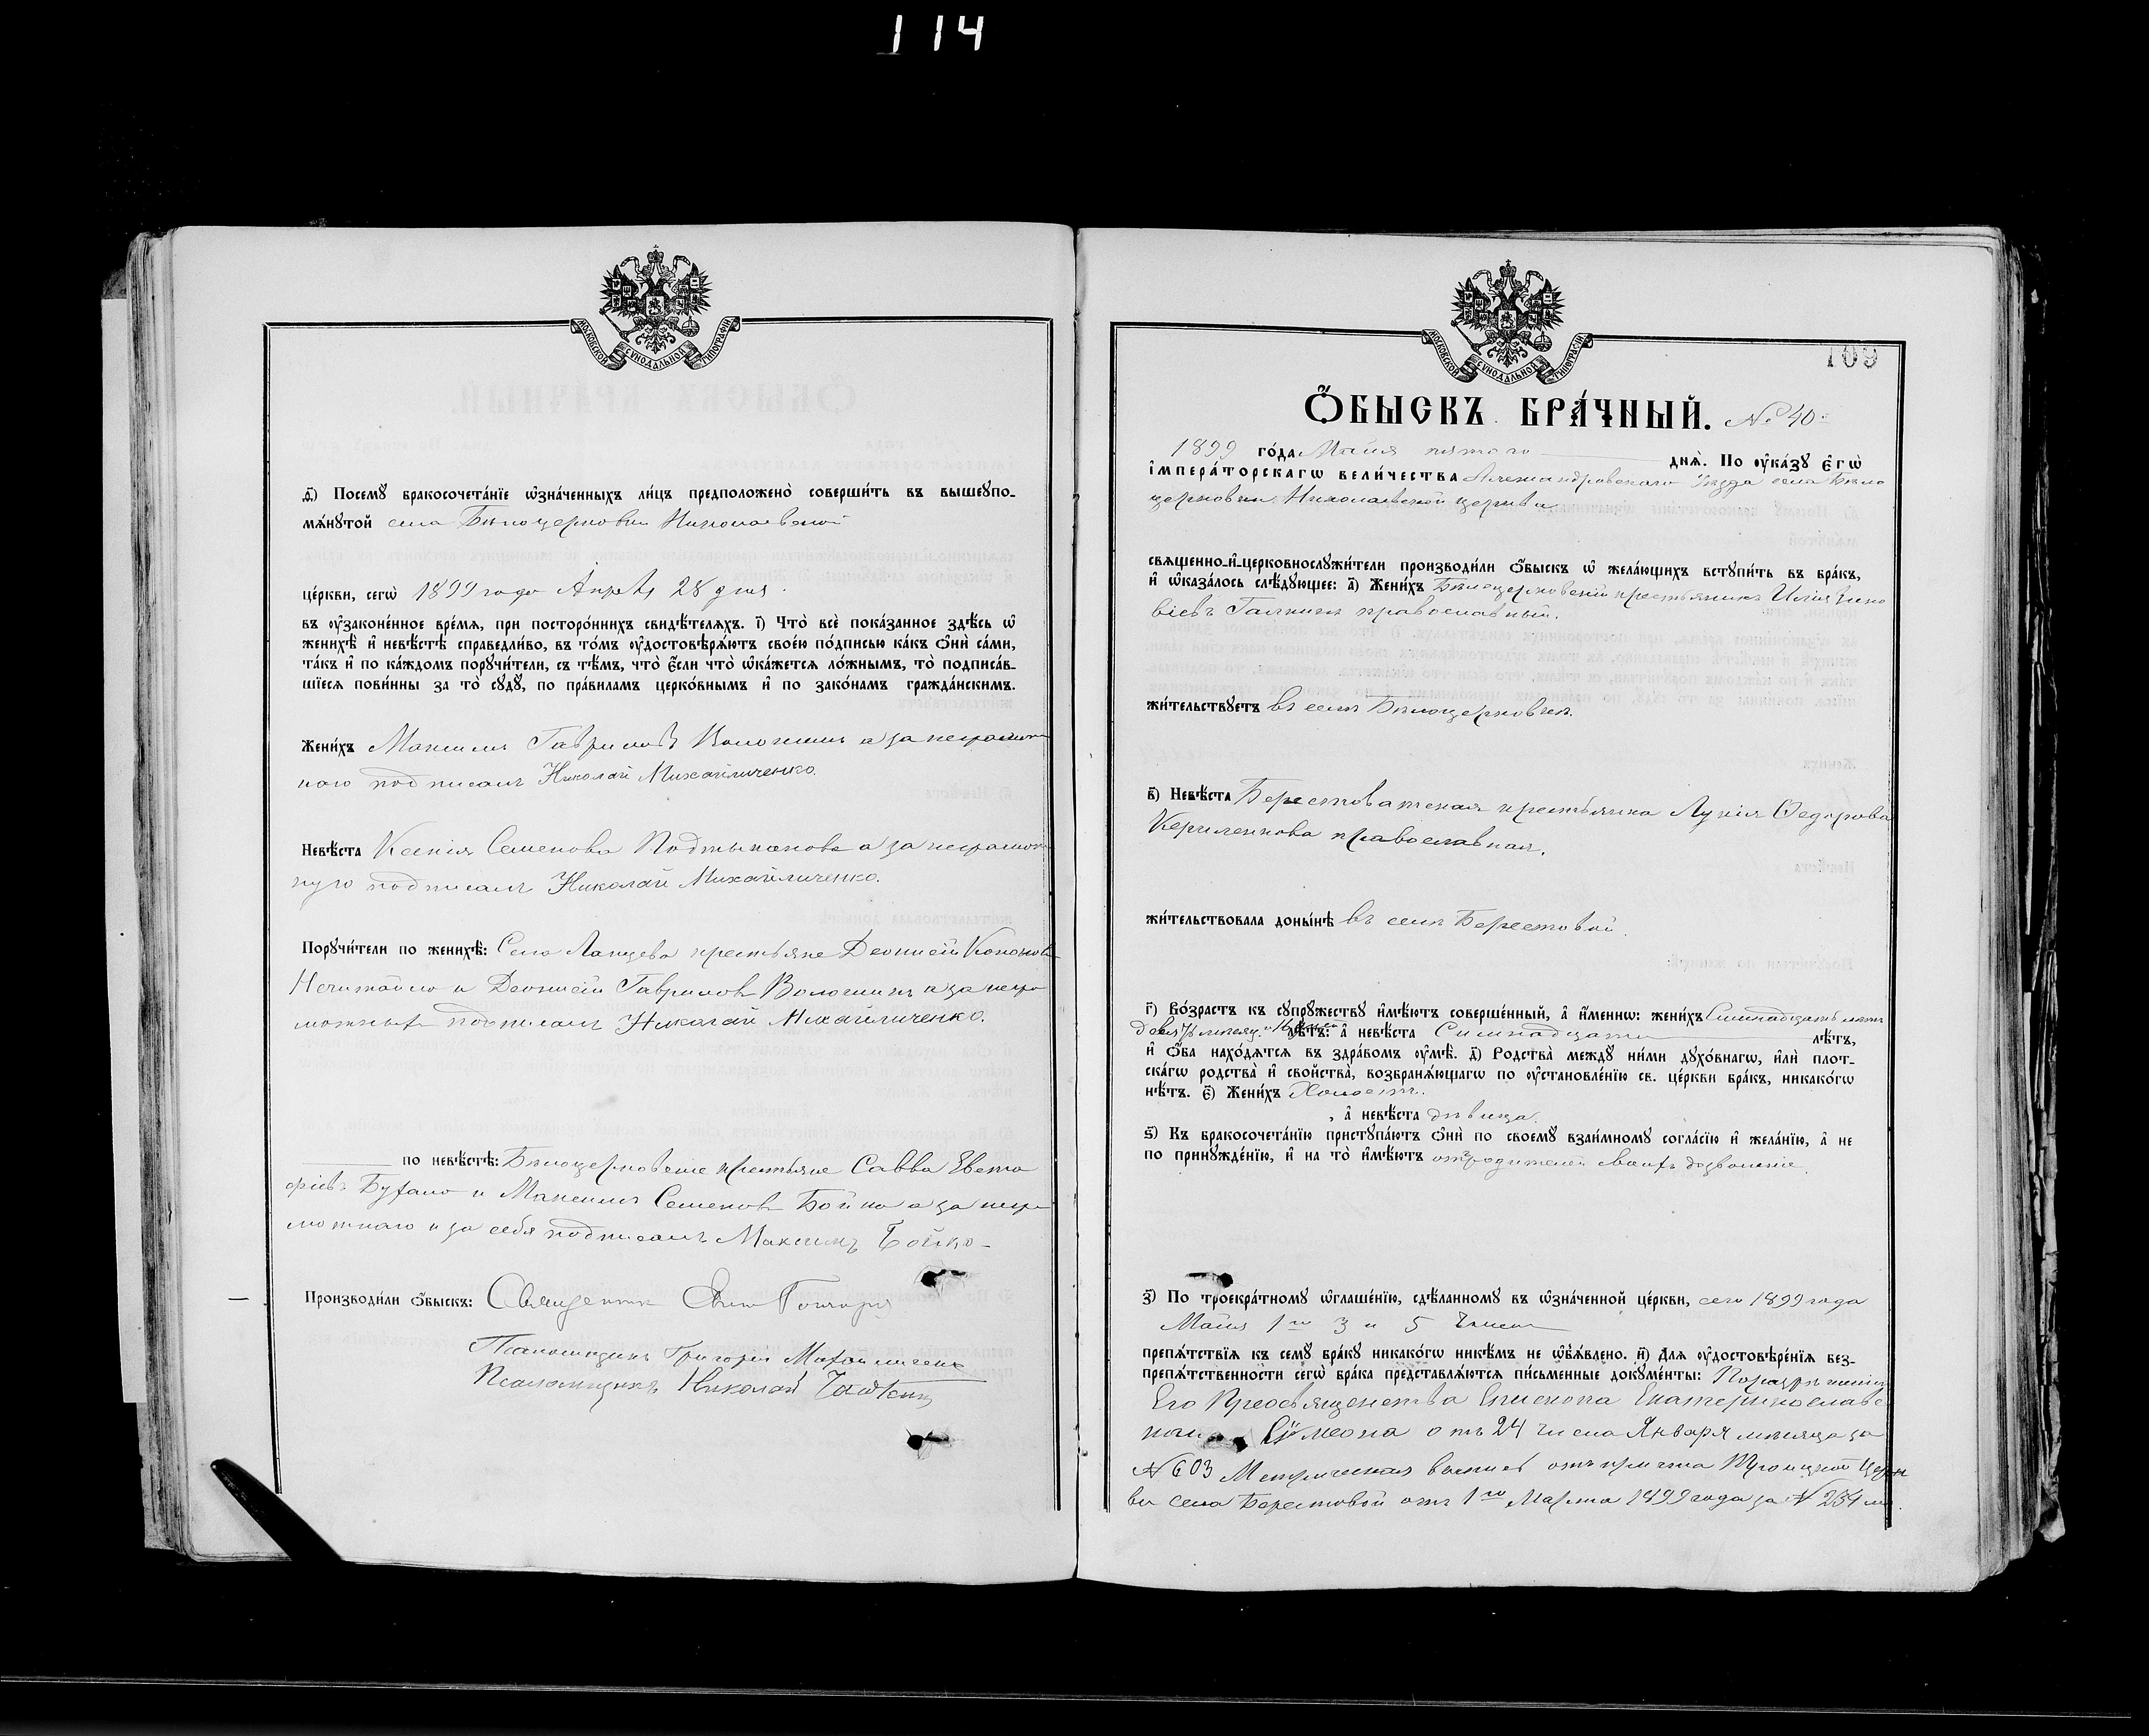 114
МОСКОВСКОЙ СѴНОДАЛЬНОЙ ТИПОГРАФІИ
ѳ҃) Посемꙋ бракосочета́нїе ѡ҆зна́ченныхъ ли́цъ предположено̀ соверши́ть въ вышеꙋпо-
мѧ́нꙋтой села Бѣлоцерковки Николаевской
це́ркви, сегѡ̀ 1899 года Апрѣля 28 дня.
въ ᲂу҆зако́ненное вре́мѧ, при посторо́ннихъ свидѣ́телѧхъ. і҃) Что̀ всѐ пока́занное здѣ́сь ѡ҆
женихѣ̀ и҆ невѣ́стѣ справедли́во, въ то́мъ ᲂу҆достовѣрѧ́ютъ свое́ю по́дписью ка́къ ѻ҆нѝ са́ми,
та́къ и҆ по ка́ждомъ порꙋчи́тели, съ тѣ́мъ, что̀ є҆́сли что̀ ѡ҆ка́жетсѧ ло́жнымъ, то̀ подписа́в-
шїесѧ пови́нны за то̀ сꙋдꙋ̀, по пра́виламъ церко́внымъ и҆ по зако́намъ гражда́нскимъ.
Жени́хъ Максимъ Гавриловъ Волошинъ а за неграмот
наго подписалъ Николай Михайличенко.
Невѣ́ста Ксенія Семенова а за неграмот
ную подписалъ Николай Михайличенко.
Порꙋчи́тели по женихѣ̀: Села Ланцева крестьяне Деонисій Кононов
Нечитайло и Деонисій Гавриловъ Волошинъ а за негра
мотныхъ подписалъ Николай Михайличенко.
по невѣ́стѣ: Бѣлоцерковские крестьяне Савва Евста
фіевъ и Максимъ Семеновъ Бойко а за негра
мотнаго и за себя подписалъ Максимъ Бойко
Производи́ли ѻ҆́быскъ: Священникъ
Псаломщикъ Григорій
Псаломщикъ Николай
МОСКОВСКОЙ СѴНОДАЛЬНОЙ ТИПОГРАФІИ
109
Ѻ҆́БЫСКЪ БРА́ЧНЫЙ. № 40
1899 го́да Мая пятого днѧ̀. По ᲂу҆ка́зꙋ є҆гѡ̀
і҆мпера́торскагѡ вели́чества Александровскаго Уѣзда села Бѣло
церковки Николаевской церкви
свѧщенно-и҆-церковнослꙋжи́тели производи́ли ѻ҆́быскъ ѡ҆ жела́ющихъ встꙋпи́ть въ бра́къ,
и҆ ѡ҆каза́лось слѣ́дꙋющее: а҃) Жени́хъ Бѣлоцерковскій крестьянинъ Илія Зино
віевъ Галкинъ православный.
жи́тельствꙋетъ въ селѣ Бѣлоцерковкѣ.
в҃) Невѣ́ста Берестоватская крестьянка Лукія Ѳедорова
православная.
жи́тельствовала доны́нѣ въ селѣ Берестовой.
г҃) Во́зрастъ къ сꙋпрꙋ́жествꙋ и҆мѣ́ютъ соверше́нный, а҆ и҆́меннѡ: жени́хъ Семнадцать лѣтъ
девять мѣсяц. и 16 лѣ́тъ: а҆ невѣ́ста Семнадцати лѣ́тъ,
и҆ ѻ҆́ба нахо́дѧтсѧ въ здра́вомъ ᲂу҆мѣ̀. д҃) Родства̀ междꙋ̀ ни́ми дꙋхо́внагѡ, и҆лѝ плот-
ска́гѡ родства̀ и҆ свойства̀, возбранѧ́ющагѡ по ᲂу҆становле́нїю св. це́ркви бра́къ, никако́гѡ
нѣ́тъ. є҃) Жени́хъ Холостъ.
, а҆ невѣ́ста дѣвица.
ѕ҃) Къ бракосочета́нїю пристꙋпа́ютъ ѻ҆нѝ по своемꙋ̀ взаи́мномꙋ согла́сїю и҆ жела́нїю, а҆ не
по принꙋжде́нїю, и҆ на то̀ и҆мѣ́ютъ отъ родителей своихъ дозволеніе.
з҃) По троекра́тномꙋ ѡ҆глаше́нїю, сдѣ́ланномꙋ въ ѡ҆зна́ченной це́ркви, сего 1899 года
Мая 1го 3 и 5 Чиселъ
препѧ́тствїѧ къ семꙋ̀ бра́кꙋ никако́гѡ никѣ́мъ не ѡ҆б̾ѧ́влено. и҃) Длѧ̀ ᲂу҆достовѣре́нїѧ без-
препѧ́тственности сегѡ̀ бра́ка представлѧ́ютсѧ пи́сьменные докꙋме́нты: Разрѣшеніе
Его Преосвященства Епископа Екатеринославс
каго Сѵмеона отъ 24 числа Января мѣсяца за
№ 603 Метрическая выпись отъ причта Троицкой Церк
ви села Берестовой отъ 1го Марта 1899 года за № 234 мъ.